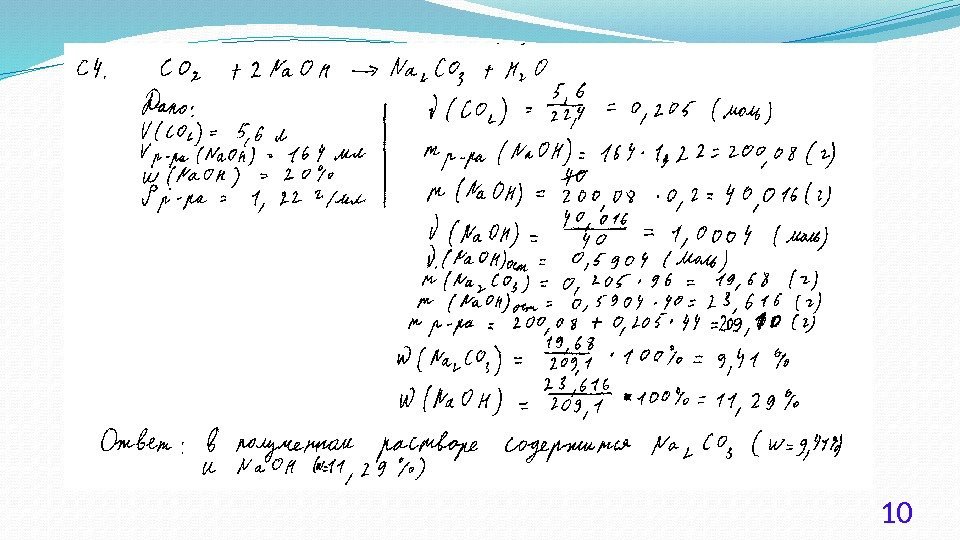 С4. CO₂ + 2NaOH → Na₂CO₃ + H₂O
Дано:
V(CO₂) = 5,6 л
V р-ра (NaOH) = 164 мл
w (NaOH) = 20%
ρ р-ра = 1,22 г/мл
ν(CO₂) = 5,6/22,4 = 0,205 (моль)
m р-ра (NaOH) = 164 · 1,22 = 200,08 (г)
40
m (NaOH) = 200,08 · 0,2 = 40,016 (г)
ν (NaOH) = 40,016/40 = 1,0004 (моль)
ν (NaOH) ост = 0,5904 (моль)
m (Na₂CO₃) = 0,205 · 96 = 19,68 (г)
m (NaOH) ост = 0,5904 · 40 = 23,616 (г)
m р-ра = 200,08 + 0,205 · 44 = 209,10 (г)
w (Na₂CO₃) = 19,68/209,1 · 100% = 9,41 %
w (NaOH) = 23,616/209,1 · 100% = 11,29%
Ответ: в полученном растворе содержится Na₂CO₃ (w=9,41%)
и NaOH (w=11,29%)
10